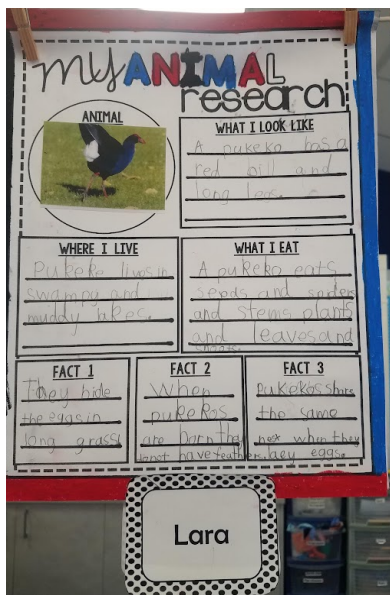 my ANIMAL
research
ANIMAL
WHAT I LOOK LIKE
A pukeko has a
red bill and
long legs.
WHERE I LIVE
Pukeko lives in
swamps and
muddy lakes.
WHAT I EAT
A pukeko eats
seeds and spiders
and stems plants
and leaves and
FACT 1
They hide
the eggs in
long grass
FACT 2
When
pukekos
are born they
donot have feathers.
FACT 3
Pukekos share
the same
nest when they
laey eggs.
Lara